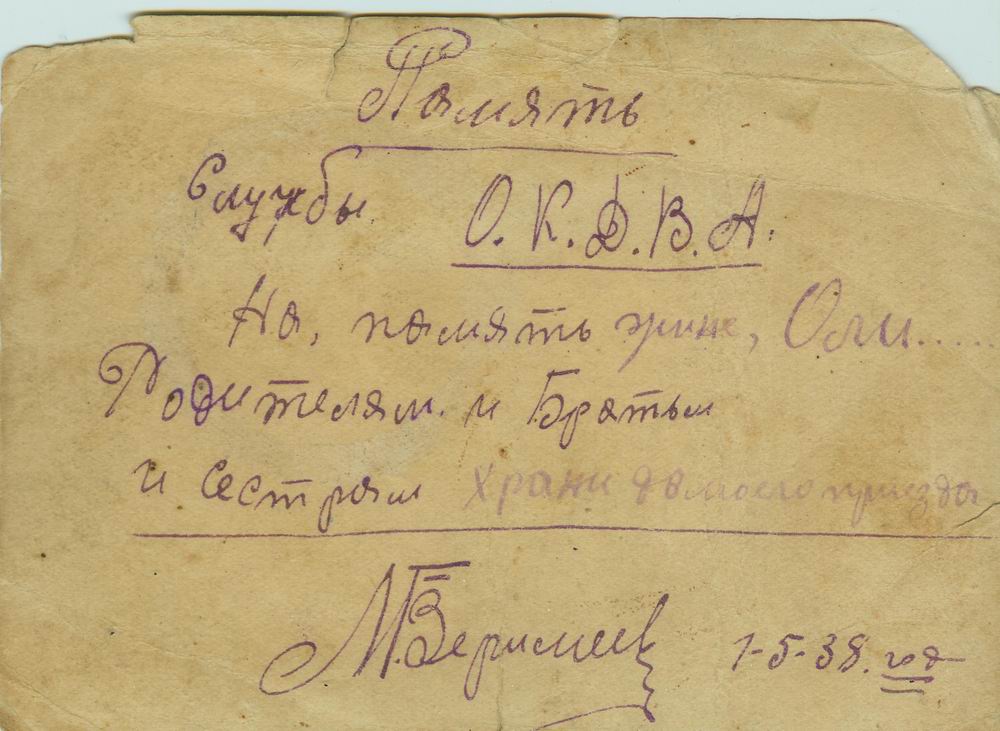 Память
Службы О.К.Д.В.А.
На, память жине, Оли......
Родителям. и Братьм
и сестрам храни до моего приезда
1-5-38. год